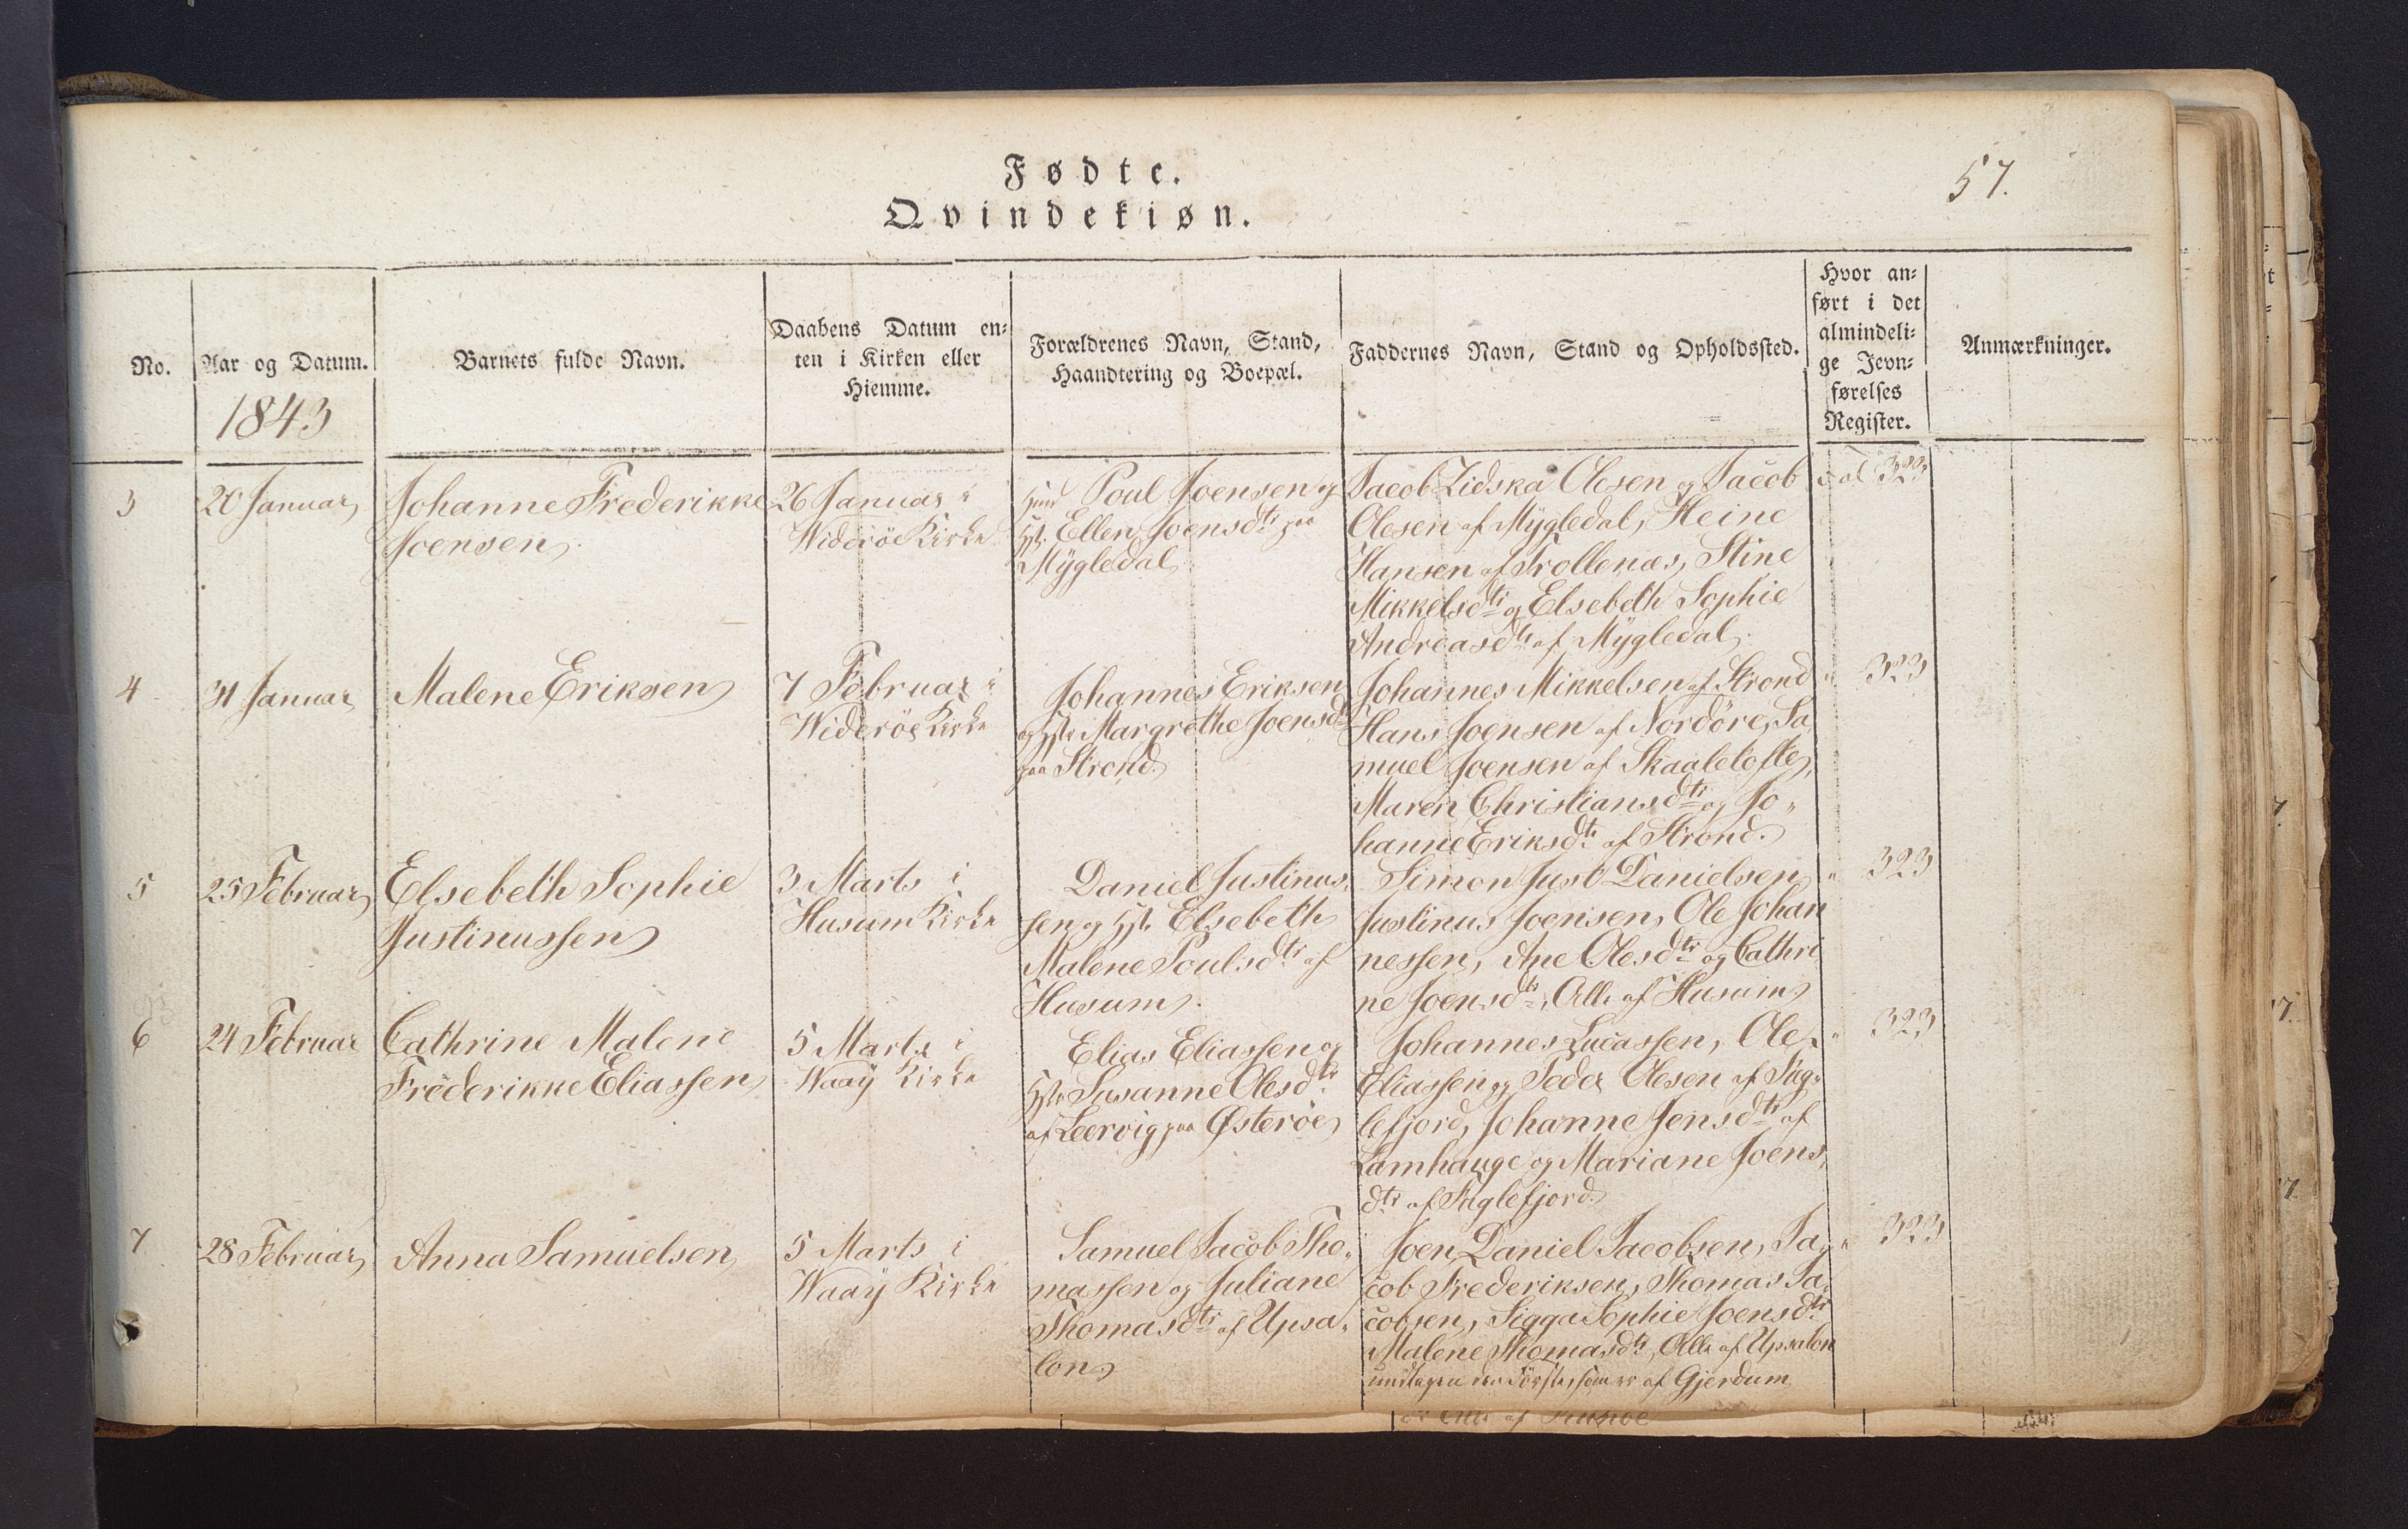 Fødte.
Qvindekiøn.
57.
No.
Aar og Datum.
1843
Barnets fulde Navn.
Daabens Datum en-
ten i Kirken eller
Hiemme.
Forældrenes Navn, Stand,
Haandtering og Boepæl.
Faddernes Navn, Stand og Opholdssted.
Hvor an-
ført i det
almindeli-
ge Jevn-
førelses
Register.
Anmærkninger.
3
20 Januar
Johanne Frederikke
Joensen
26 Januar i
Wideröe Kirke
Poul Joensen og
Hst. Ellen Joensdtr paa
Mÿgledal
Jacob Zidska Olesen og Jacob
Olesen af Mÿgledal, Heine
Hansen af Trollenæs, Stine
Mikkelsdtr og Elsebeth Sophie
Andreasdtr af Mÿgledal.
323
4
31 Januar
Malene Eriksen
7 Februar i
Wideröe Kirke
Johannes Eriksen
og Hst. Margrethe Joensdtr
paa Strond
Johannes Mikkelsen af Strond
Hans Joensen af Nordöre, Sa
muel Joensen af Skaaletofte,
Maren Christiansdtr og Jo-
hanne Eriksdtr af Strond.
" 323
5
25 Februar
Elsebeth Sophie
Justinussen
3 Marts i
Husum Kirke
Daniel Justinus-
sen og Hst. Elsebeth
Malene Poulsdtr af
Husum.
Simon Just Danielsen
Justinus Joensen, Ole Johan
nessen, Ane Olesdtr og Cathri
ne Joensdtr, Alle af Husum
" 323
6
24 Februar
Cathrine Malene
Frederikke Eliassen
5 Marts i
Waaÿ Kirke
Elias Eliassen og
Hst. Susanne Olesdtr
af Leervig paa Østeröe
Johannes Lucassen, Ole
Eliassen og Peder Olesen af Fug-
lefjord, Johanne Jensdtr af
Lamhauge og Mariane Joens-
dtr af Fuglefjord
" 323
7
28 Februar
Anna Samuelsen
5 Marts i
Waaÿ Kirke
Samuel Jacob Tho-
massen og Juliane
Thomasdtr af Upsa-
lon
Joen Daniel Jacobsen, Ja-
cob Frederiksen, Thomas Ja-
cobsen, Sigga Sophie Joensdtr
Malene Thomasdtr, Alle af Upsalon
undtagen den Förste, som er af Gjerdum
" 323